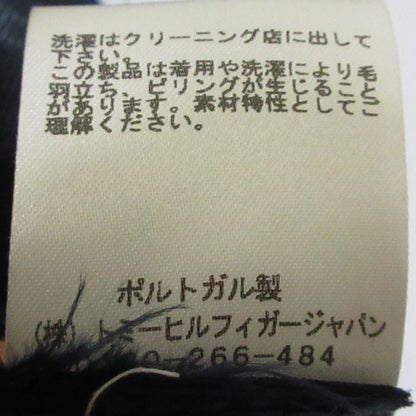 洗濯はクリーニング店に出して
下さい。
この製品は着用や洗濯により毛
羽立ち、ピリングが生じること
があります。素材特性としてご
理解ください。
ポルトガル製
(株)トミーヒルフィガージャパン
0-266-484